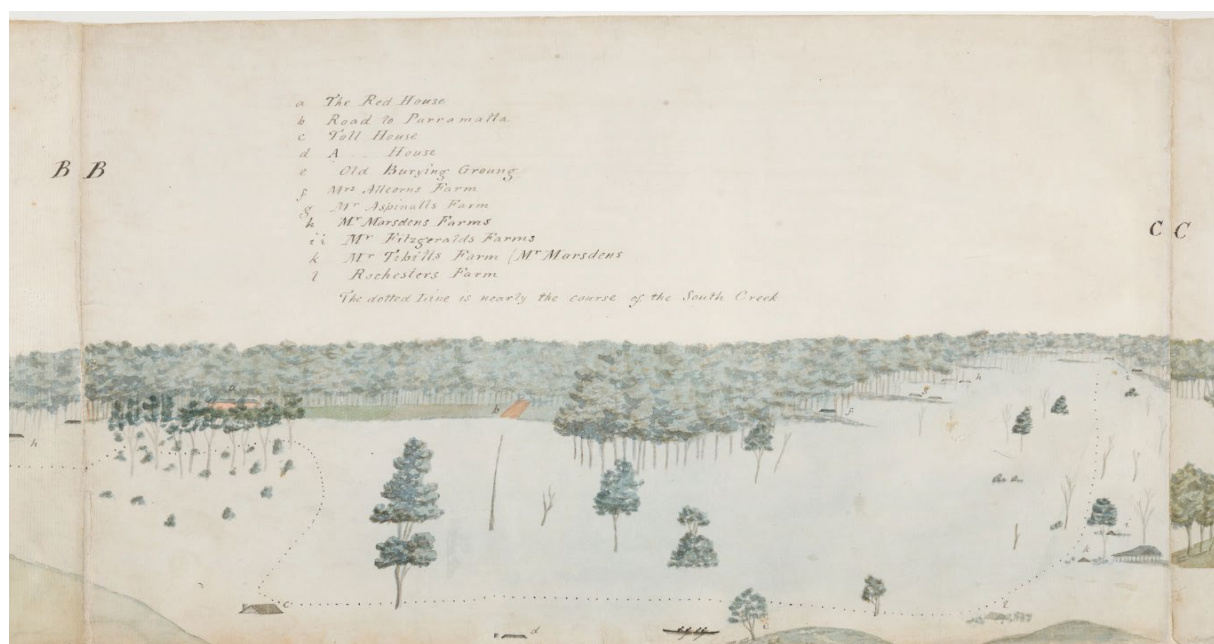 a The Red House
b Road to Parramatta
c Toll House
d A House
e Old Burying Groung
f Mrs Allcorns Farm
g Mr Aspinalls Farm
h Mr Marsdens Farms
ii Mr Fitzgeralds Farms
k Mr Tibills Farm (Mr Marsdens
l Rochesters Farm
The dotted Line is nearly the course of the South Creek
B B
C C
a
b
h
f
h
i
k
c
d
l